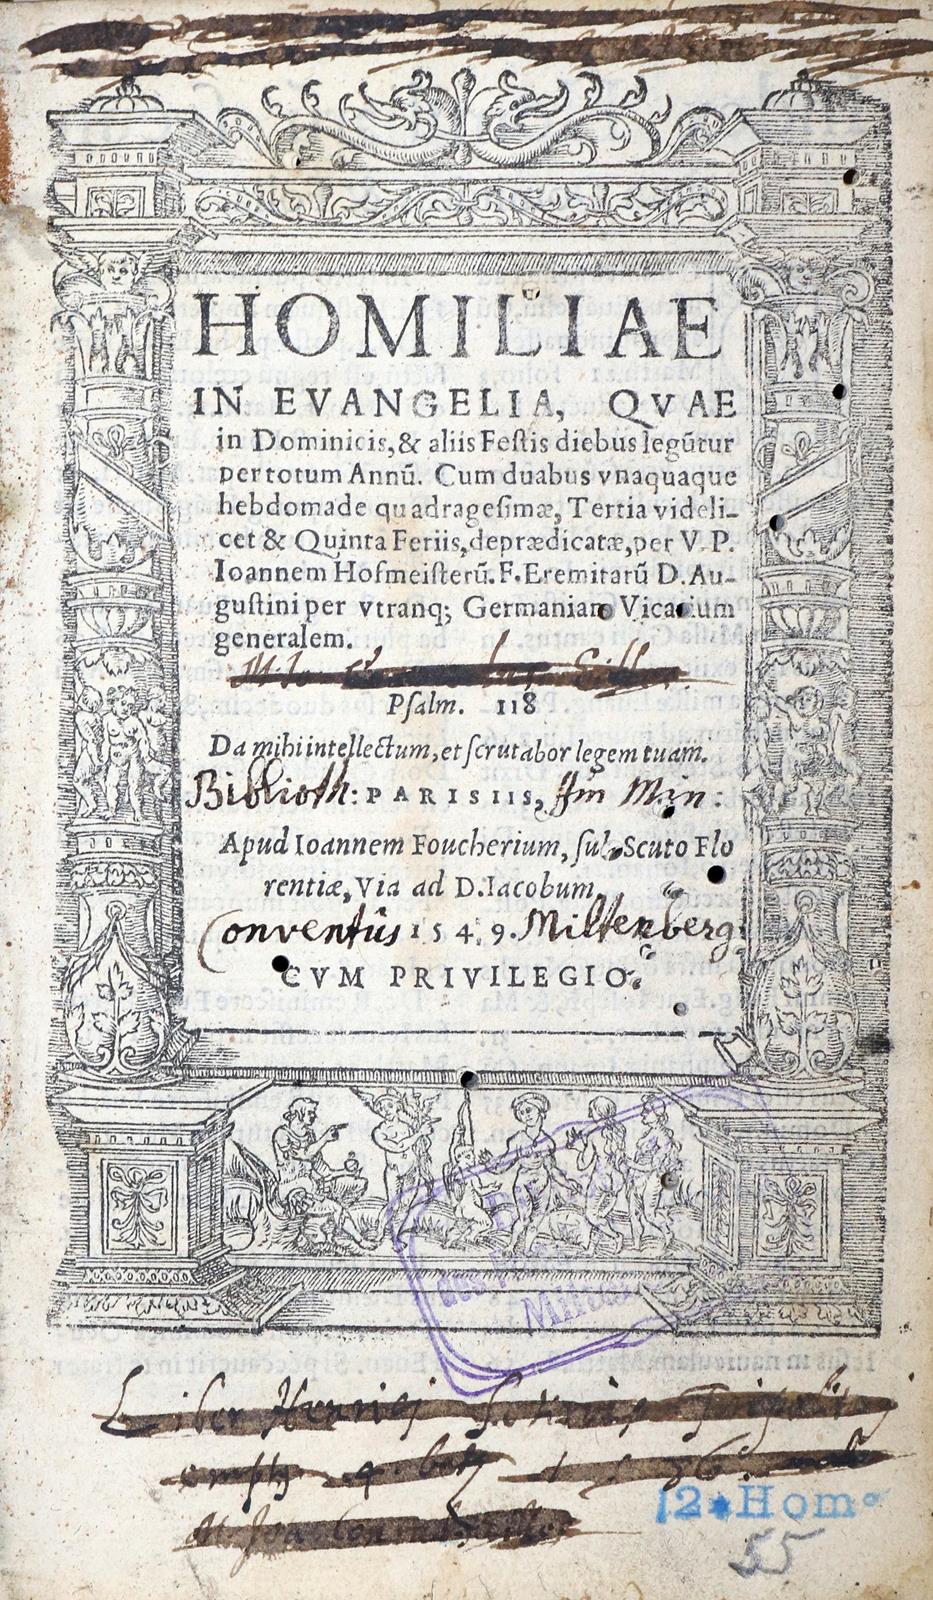 HOMILIAE
IN EVANGELIA, QVAE
in Dominicis, & aliis Festis diebus legũtur
per totum Annũ. Cum duabus vnaquaque
hebdomade quadragesimæ, Tertia videli-
cet & Quinta Feriis, deprædicatæ, per V. P.
Ioannem Hofmeisterũ. F. Eremitarũ D. Au-
gustini per vtranq; Germaniam Vicarium
generalem.
Psalm. 118
Da mihi intellectum, et scrutabor legem tuam.
Biblioth: PARISIIS, Min:
Apud Ioannem Foucherium, sub Scuto Flo
rentiæ, Via ad D. Iacobum,
Conventûs 1549. Miltenberg:
CVM PRIVILEGIO.
Liber Henrici
12* Hom
55